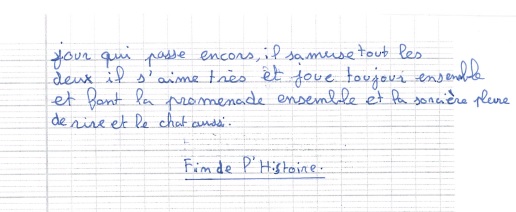 jour qui passe encors, il samuse tout les
deux il s'aime très et joue toujoui ensemble
et font la promenade ensemble et la sorcière pleure
de rire et le chat aussi.
Fin de l'Histoire.